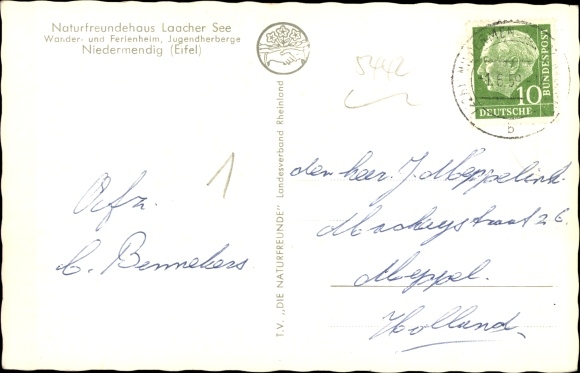 Naturfreundehaus Laacher See
Wander- und Ferienheim, Jugendherberge
Niedermendig (Eifel)
5442
1
Afz.
C. Bennekers.
T.V. „DIE NATURFREUNDE" Landesverband Rheinland
10
DEUTSCHE
BUNDESPOST
b
den heer J. Meppelink.
26
Meppel.
Holland